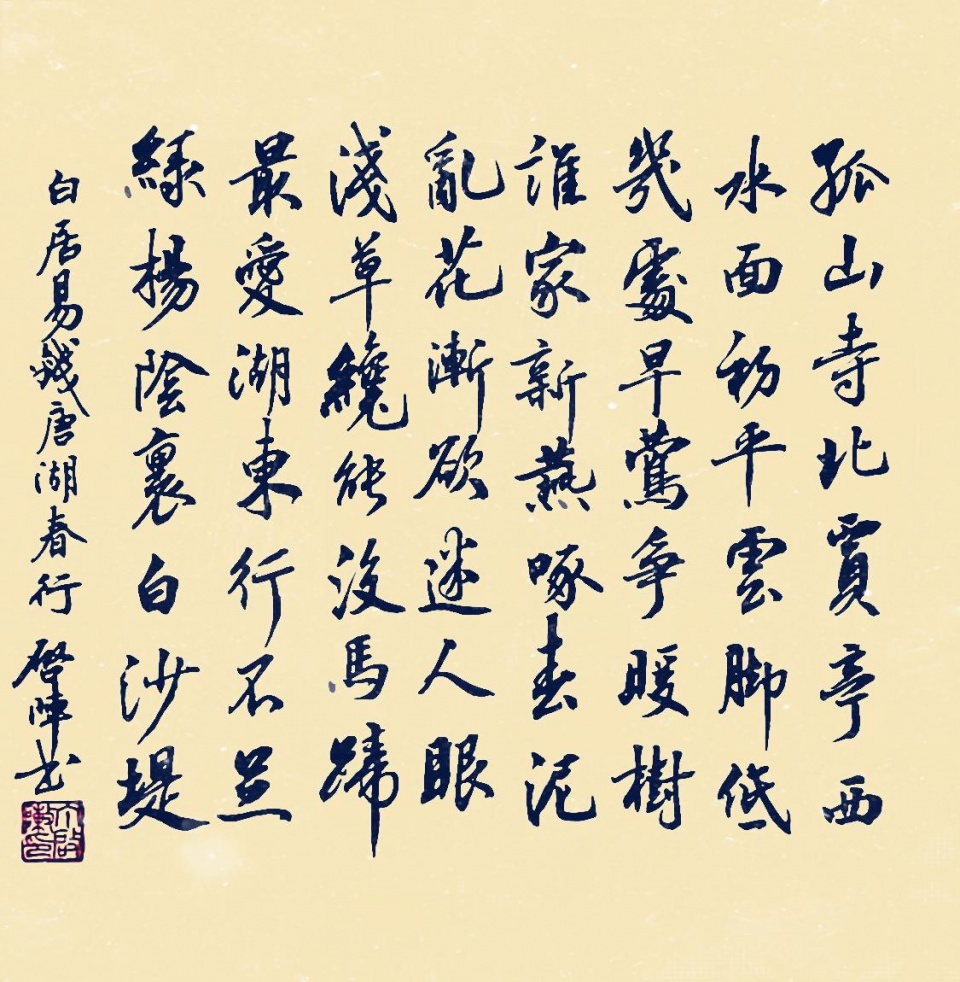 孤山寺北賈亭西
水面初平雲脚低
幾處早鶯爭暖樹
誰家新燕啄春泥
亂花漸欲迷人眼
淺草纔能没馬蹄
最愛湖東行不足
綠楊陰裏白沙堤
白居易錢唐湖春行 啓陣书